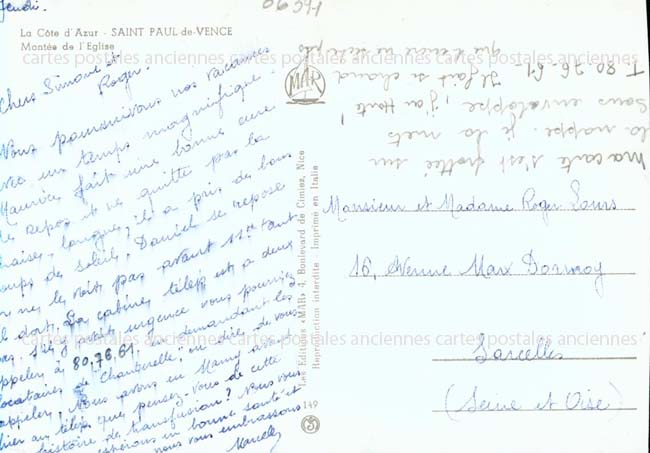 Jeudi.
La Côte d'Azur - SAINT PAUL-de-VENCE
Montée de l'Eglise
Chers Simone et
Roger.
Nous poursuivons nos vacances
avec un temps magnifique.
Maurice fait une bonne cure
de repos et ne quitte pas la
chaise longue, il a pris de bons
coups de soleil, Daniel se repose
on ne le voit pas avant 11h tant
il dort. La cabine télép est à deux
pas. S'il y avait urgence vous pourriez
appeler à 80.76.61. en demandant les
locataires de Chanterelle, ou dire de vous
appeler. Nous avons eu Mamy avant
hier au télép que pensez-vous de cette
histoire de transfusion? Nous vous
espérons en bonne santé et
nous vous embrassons
Marcelle
Les Editions «MAR» 4, Boulevard de Cimiez, Nice
Reproduction interdite Imprimé en Italie
149
MAR
ma carte s'est frottée sur
la nappe. je la mets
sous enveloppe, j'ai honte!
T. 80-76-61 Il fait si chaud
que l'encre ne sèche pas
Monsieur et Madame Roger
16, Avenue Marx Dormoy
Sarcelles
(Seine et Oise)
cartes postales anciennes cartes postales anciennes cartes postales anciennes
cartes postales anciennes cartes postales anciennes cartes postales anciennes
cartes postales anciennes cartes postales anciennes cartes postales anciennes